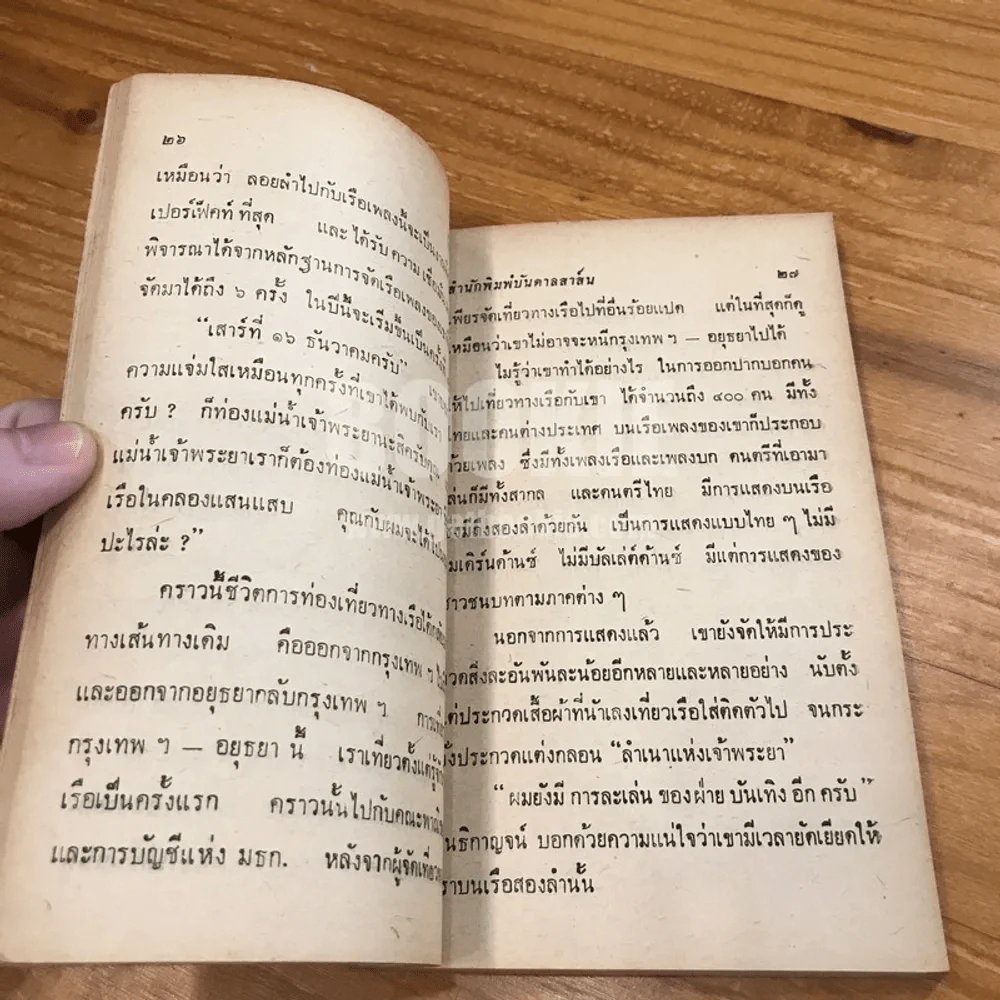 ๒๖
เหมือนว่า ลอยลำไปกับเรือเพลงนี้จะเป็น
เปอร์เฟ็คท์ ที่สุด และ ได้รับ ความ
พิจารณาได้จากหลักฐานการจัดเรือเพลง
จัดมาได้ถึง ๖ ครั้ง ในปีนี้จะเริ่มขึ้นเป็น
“เสาร์ที่ ๑๖ ธันวาคมครับ”
ความแจ่มใสเหมือนทุกครั้งที่เขาได้พบกับเรา
ครับ ? ก็ท่องแม่น้ำเจ้าพระยานะสิครับคุณ
แม่น้ำเจ้าพระยาเราก็ต้องท่องแม่น้ำเจ้าพระยา
เรือในคลองแสนแสบ คุณกับผมจะได้
ปะไรล่ะ ?”
คราวนี้ชีวิตการท่องเที่ยวทางเรือได้
ทางเส้นทางเดิม คือออกจากกรุงเทพ ฯ
และออกจากอยุธยากลับกรุงเทพ ฯ
กรุงเทพ ฯ — อยุธยา นี้ เราเที่ยวตั้งแต่
เรือเป็นครั้งแรก คราวนั้นไปกับคณะ
และการบัญชีแห่ง มธก. หลังจากผู้จัดเที่ยว
สำนักพิมพ์บันดาลสาส์น ๒๗
เพียรจัดเที่ยวทางเรือไปที่อื่นร้อยแปด แต่ในที่สุดก็ดู
เหมือนว่าเขาไม่อาจจะหนีกรุงเทพ ฯ — อยุธยาไปได้
ไม่รู้ว่าเขาทำได้อย่างไร ในการออกปากบอกคน
ให้ไปเที่ยวทางเรือกับเขา ได้จำนวนถึง ๔๐๐ คน มีทั้ง
ไทยและคนต่างประเทศ บนเรือเพลงของเขาก็ประกอบ
ด้วยเพลง ซึ่งมีทั้งเพลงเรือและเพลงบก ดนตรีที่เอามา
เล่นก็มีทั้งสากล และดนตรีไทย มีการแสดงบนเรือ
ซึ่งมีถึงสองลำด้วยกัน เป็นการแสดงแบบไทย ๆ ไม่มี
โมเดิร์นด้านซ์ ไม่มีบัลเล่ต์ด้านซ์ มีแต่การแสดงของ
ชาวชนบทตามภาคต่าง ๆ
นอกจากการแสดงแล้ว เขายังจัดให้มีการประ
กวดสิ่งละอันพันละน้อยอีกหลายและหลายอย่าง นับตั้ง
แต่ประกวดเสื้อผ้าที่นักเลงเที่ยวเรือใส่ติดตัวไป จนกระ
ทั่งประกวดแต่งกลอน “ลำเนาแห่งเจ้าพระยา”
“ ผมยังมี การละเล่น ของ ฝ่าย บันเทิง อีก ครับ”
นธิกาญจน์ บอกด้วยความแน่ใจว่าเขามีเวลายัดเยียดให้
เราบนเรือสองลำนั้น